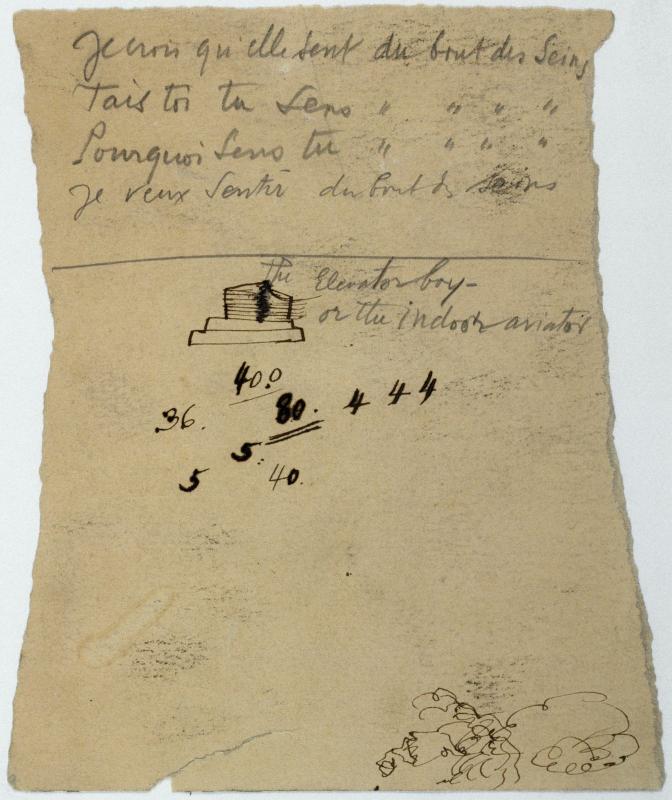 Je crois qu'elle sent du bout des Seins
Tais toi tu Sens " " " "
Pourquoi Sens tu " " " "
Je veux Sentir du bout des seins
the Elevator boy-
or the indoor aviator
40.0
36. 80. 4 4 4
5.
5 40.